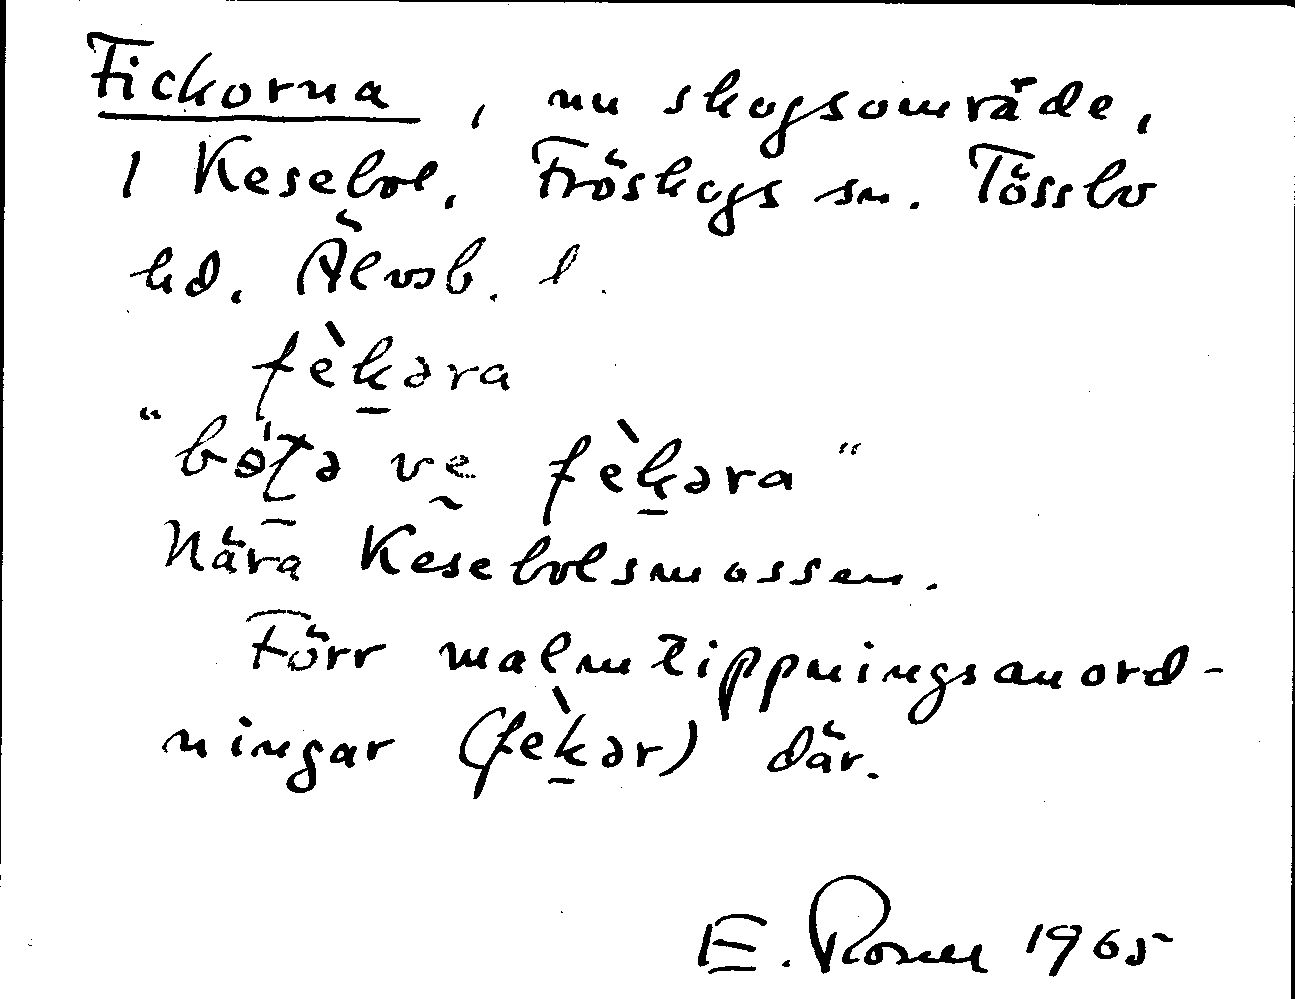 Fickorna, nu skogsområde,
i Kesebol, Fröskogs sn. Tössbo
hd. Älvsb. l.
fèk̲əra
"bót̲ə vḛ fèk̲əra"
Nära Kesebolsmossen.
Förr malmtippningsanord-
ningar (fèk̲ər) där.
E. Rosell 1965